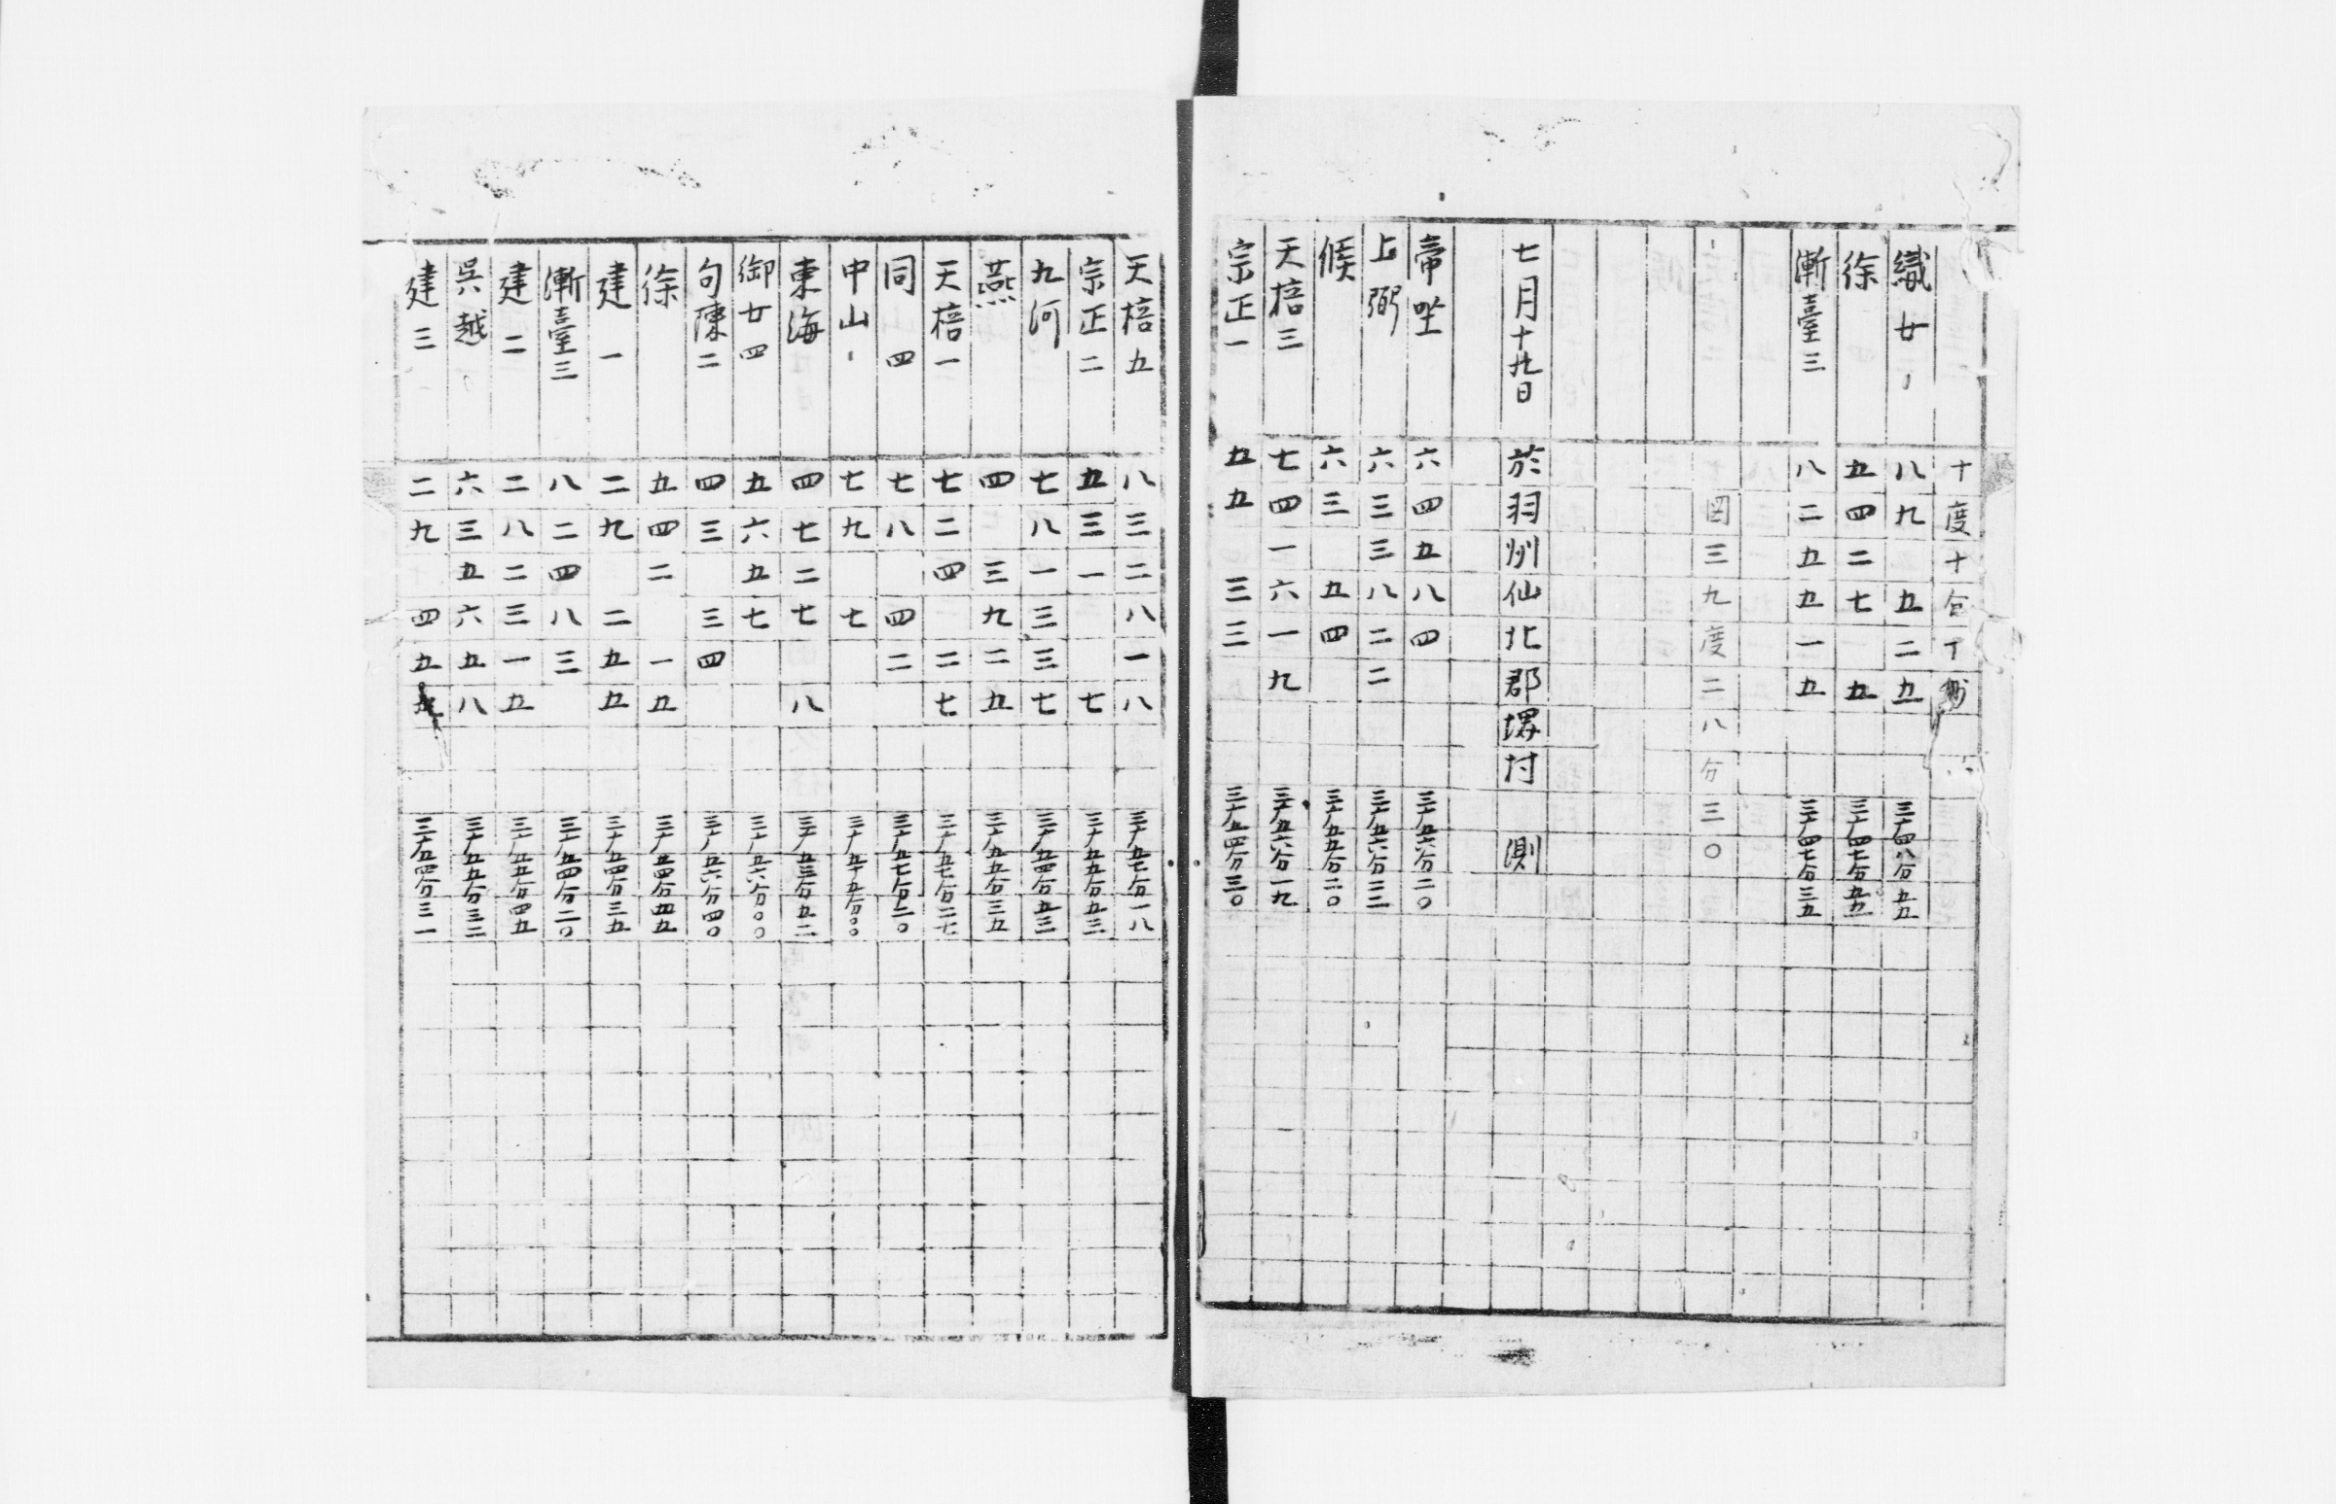 十度十分丁
織女一 八九 五二五 三十四八分五五
徐 五四二七 五 三十四七分五五
漸臺三 八二五五一五 三十四七分三五
三九度二八分三〇
七月十九日 於羽州仙北郡堺村 測
帝坐 六四五八四 三十五六分二〇
上弼 六三三八二二 三十五六分三三
候 六三 五四 三十五五分二〇
天棓三 七四一六一九 三十五六分一九
宗正一 五五 三三 三十五四分三〇
天棓五 八三二八一八 三十五七分一八
宗正二 五三一 七 三十五五分五三
九河 七八一三三七 三十五四分五三
燕 四 三九二五 三十五五分三五
天棓一 七二四 二七 三十五七分二七
同 四 七八 四二 三十五七分二〇
中山一 七九 七 三十五十五分〇〇
東海 四七二七 八 三十五三分五二
御女四 五六五七 三十五六分〇〇
句陳二 四三 三四 三十五六分四〇
徐 五四二 一五 三十五四分四五
建一 二九 二五五 三十五四分三五
漸臺三 八二四八三 三十五四分二〇
建二 二八二三一五 三十五五分四五
呉越 六三五六五八 三十五五分三三
建三 二九 四五 三十五四分三一